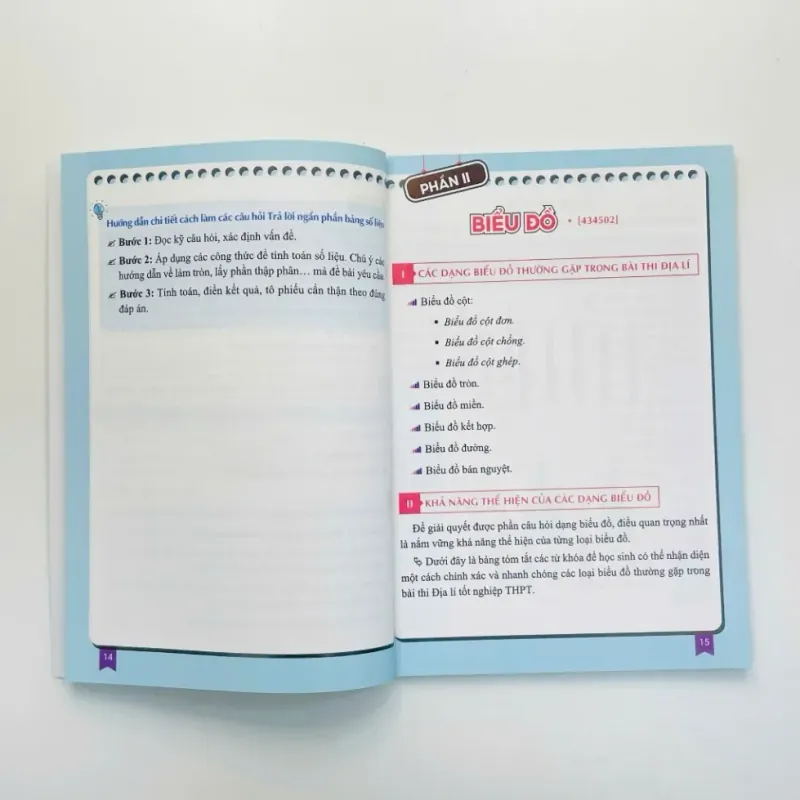 Hướng dẫn chi tiết cách làm các câu hỏi Trả lời ngắn phần bảng số liệu
Bước 1: Đọc kỹ câu hỏi, xác định vấn đề.
Bước 2: Áp dụng các công thức để tính toán số liệu. Chú ý các
hướng dẫn về làm tròn, lấy phần thập phân… mà đề bài yêu cầu.
Bước 3: Tính toán, điền kết quả, tô phiếu cẩn thận theo đúng
đáp án.
14
PHẦN II
BIỂU ĐỒ • [434502]
I CÁC DẠNG BIỂU ĐỒ THƯỜNG GẶP TRONG BÀI THI ĐỊA LÍ
Biểu đồ cột:
• Biểu đồ cột đơn.
• Biểu đồ cột chồng.
• Biểu đồ cột ghép.
Biểu đồ tròn.
Biểu đồ miền.
Biểu đồ kết hợp.
Biểu đồ đường.
Biểu đồ bán nguyệt.
II KHẢ NĂNG THỂ HIỆN CỦA CÁC DẠNG BIỂU ĐỒ
Để giải quyết được phần câu hỏi dạng biểu đồ, điều quan trọng nhất
là nắm vững khả năng thể hiện của từng loại biểu đồ.
Dưới đây là bảng tóm tắt các từ khóa để học sinh có thể nhận diện
một cách chính xác và nhanh chóng các loại biểu đồ thường gặp trong
bài thi Địa lí tốt nghiệp THPT.
15